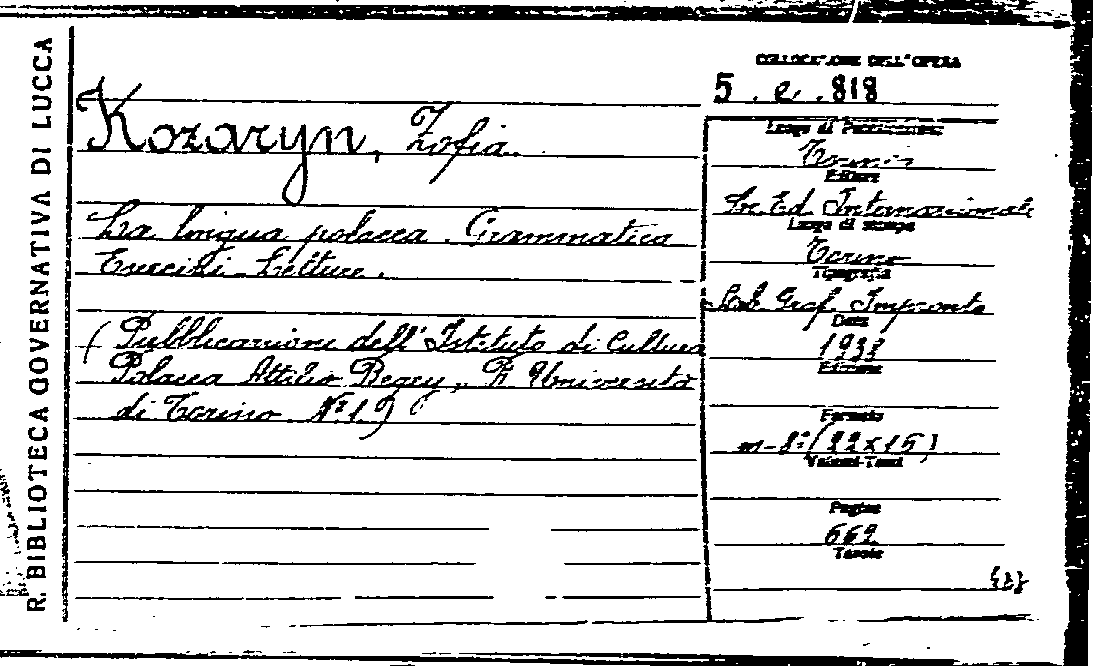 R. BIBLIOTECA GOVERNATIVA DI LUCCA
Kozaryn, Zofia.
La lingua polacca. Grammatica
Esercizi - Letture.
(Pubblicazioni dell'Istituto di Cultura
Polacca Attilio Begey, R. Università
di Torino N. 1.)
COLLOCAZIONE DELL'OPERA
5. e. 818
Luogo di Pubblicazione
Torino
Editore
Soc. Ed. Internazionale
Luogo di stampa
Torino
Tipografia
Stab. Graf. Impronta
Data
Edizione
Formato
in-8° (22x15)
Volumi-Tomi
Pagine
669
Tavole